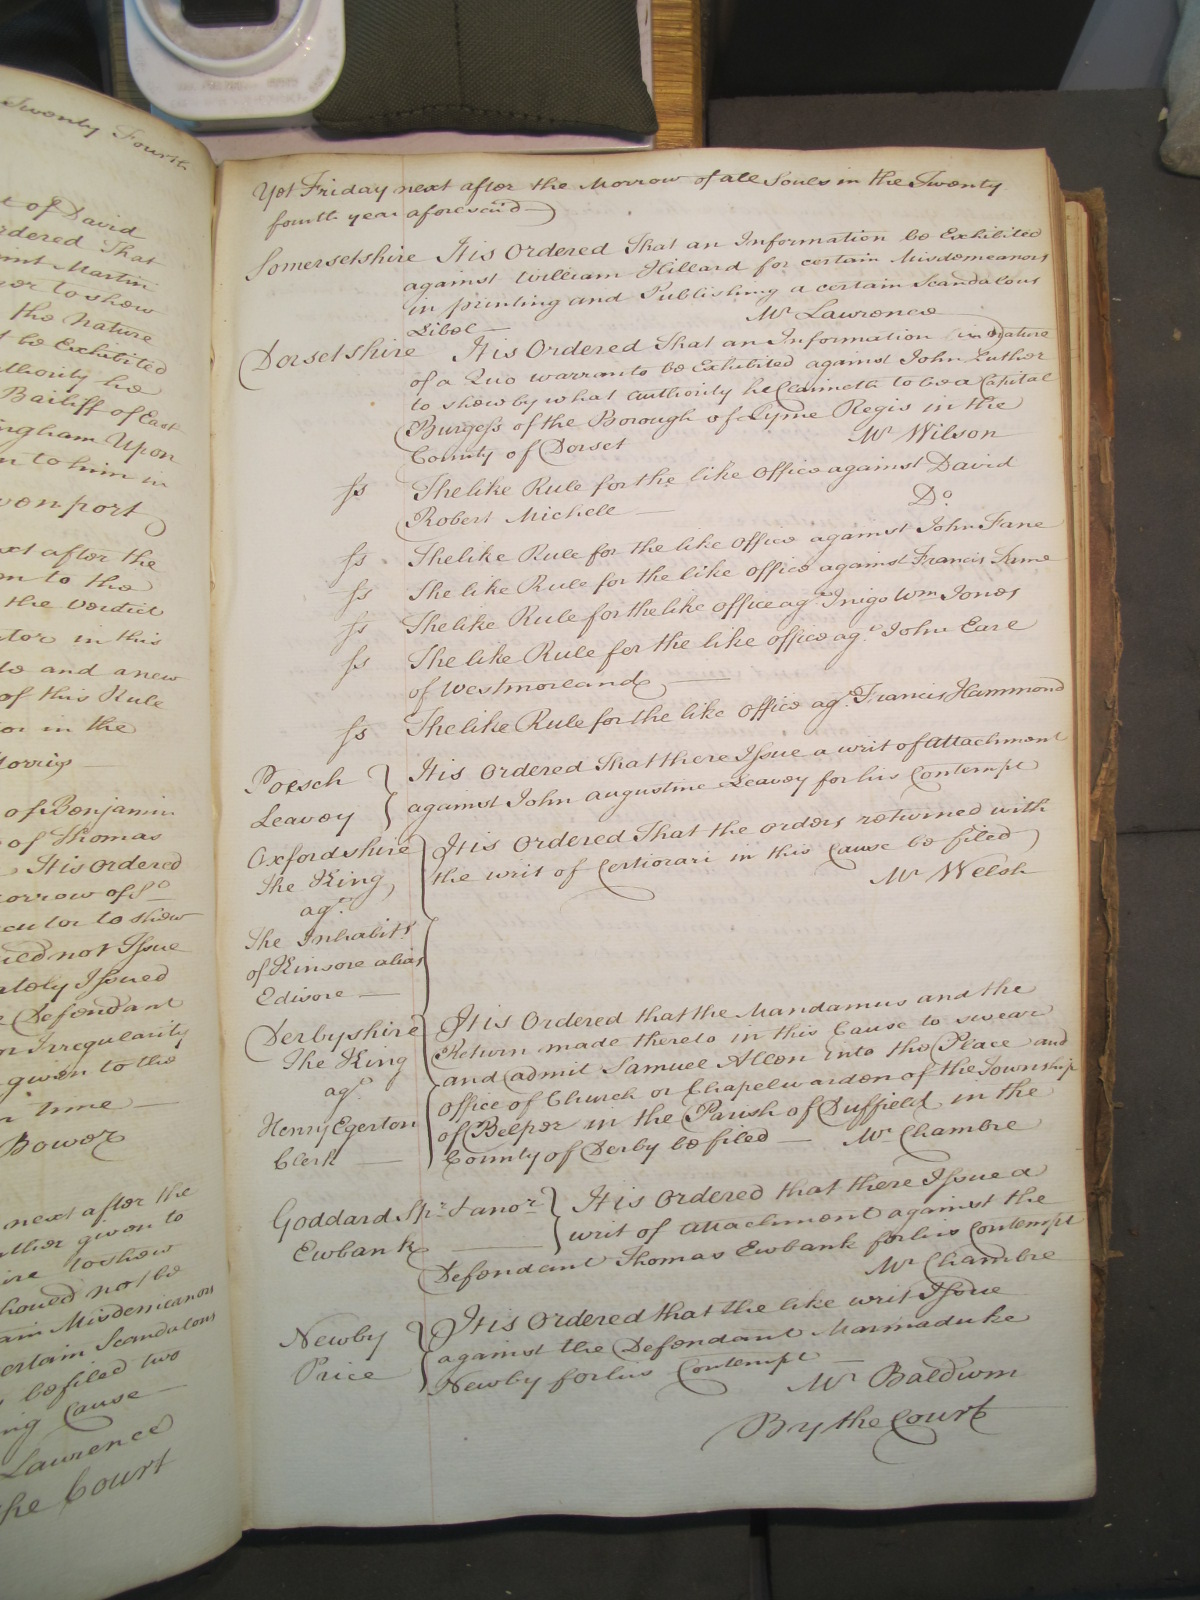 Twenty Fourth
t of David
rdered That
Martin
to show
the Nature
t be Exhibited
thority he
Bailiff of East
ngham Upon
n to him in
venport
ext after the
on to the
the Verdict
ator in this
and a new
of this Rule
or in the
Morris
of Benjamin
of Thomas
It is Ordered
orrow of St
ecutor to shew
not Issue
ately Issued
Defendant
or Irregularity
given to the
time
Bower
next after the
given to
to show
should not be
ain Misdemeanors
ertain Scandalous
be filed two
ing Cause
Lawrence
the Court
Yet Friday next after the Morrow of all Souls in the Twenty
fourth year aforesaid
Somersetshire It is Ordered That an Information be Exhibited
against William Hillard for certain Misdemeanors
in printing and Publishing a certain Scandalous
Libel Mr Lawrence
Dorsetshire It is Ordered That an Information in Nature
of a Quo warranto be Exhibited against John Luther
to shew by what authority he Claimeth to be a Capital
Burgess of the Borough of Lyme Regis in the
County of Dorset Mr Wilson
ss The like Rule for the like Office against David
Robert Michell Do
ss The like Rule for the like Office against John Fane
ss The like Rule for the like Office against Francis
ss The like Rule for the like Office agt Inigo Wm Jones
ss The like Rule for the like Office agt John Earl
of Westmorland
ss The like Rule for the like Office agt Francis Hammond
Poesch It is Ordered That there Issue a writ of attachment
Leavey against John Augustine Leavey for his Contempt
Oxfordshire It is Ordered That the orders returned with
The King the writ of Certiorari in this Cause be filed
agt Mr Welsh
The Inhabits
of Kinsore alias
Edivore
Derbyshire It is Ordered that the Mandamus and the
The King Return made thereto in this Cause to swear
agt and admit Samuel Allen into the Place and
Henry Egerton Office of Church or Chapelwarden of the Township
Clerk of Belper in the Parish of Duffield in the
County of Derby be filed Mr Chambre
Goddard Spr Ianor It is Ordered that there Issue a
Ewbank writ of attachment against the
Defendant Thomas Ewbank for his Contempt
Mr Chambre
Newby It is Ordered that the like writ Issue
Price against the Defendant Marmaduke
Newby for his Contempt
Mr Baldwin
By the Court